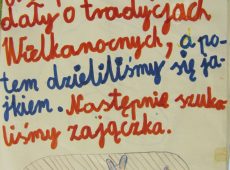 dały o tradycjach
Wielkanocnych, a po-
tem dzieliliśmy się ja-
jkiem. Następnie szuka-
liśmy zajączka.